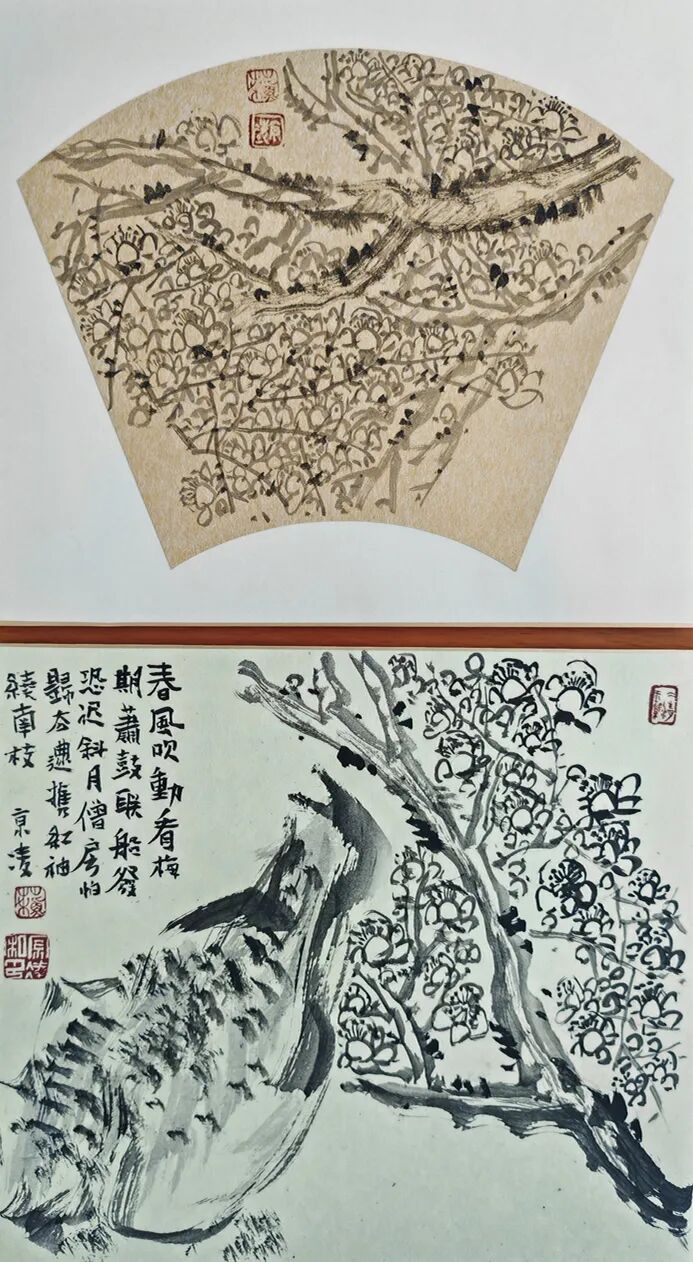 春風吹動看梅
期蕭鼓聯船發
恐迟斜月僧房怕
歸去還携紅袖
繞南枝
京凌